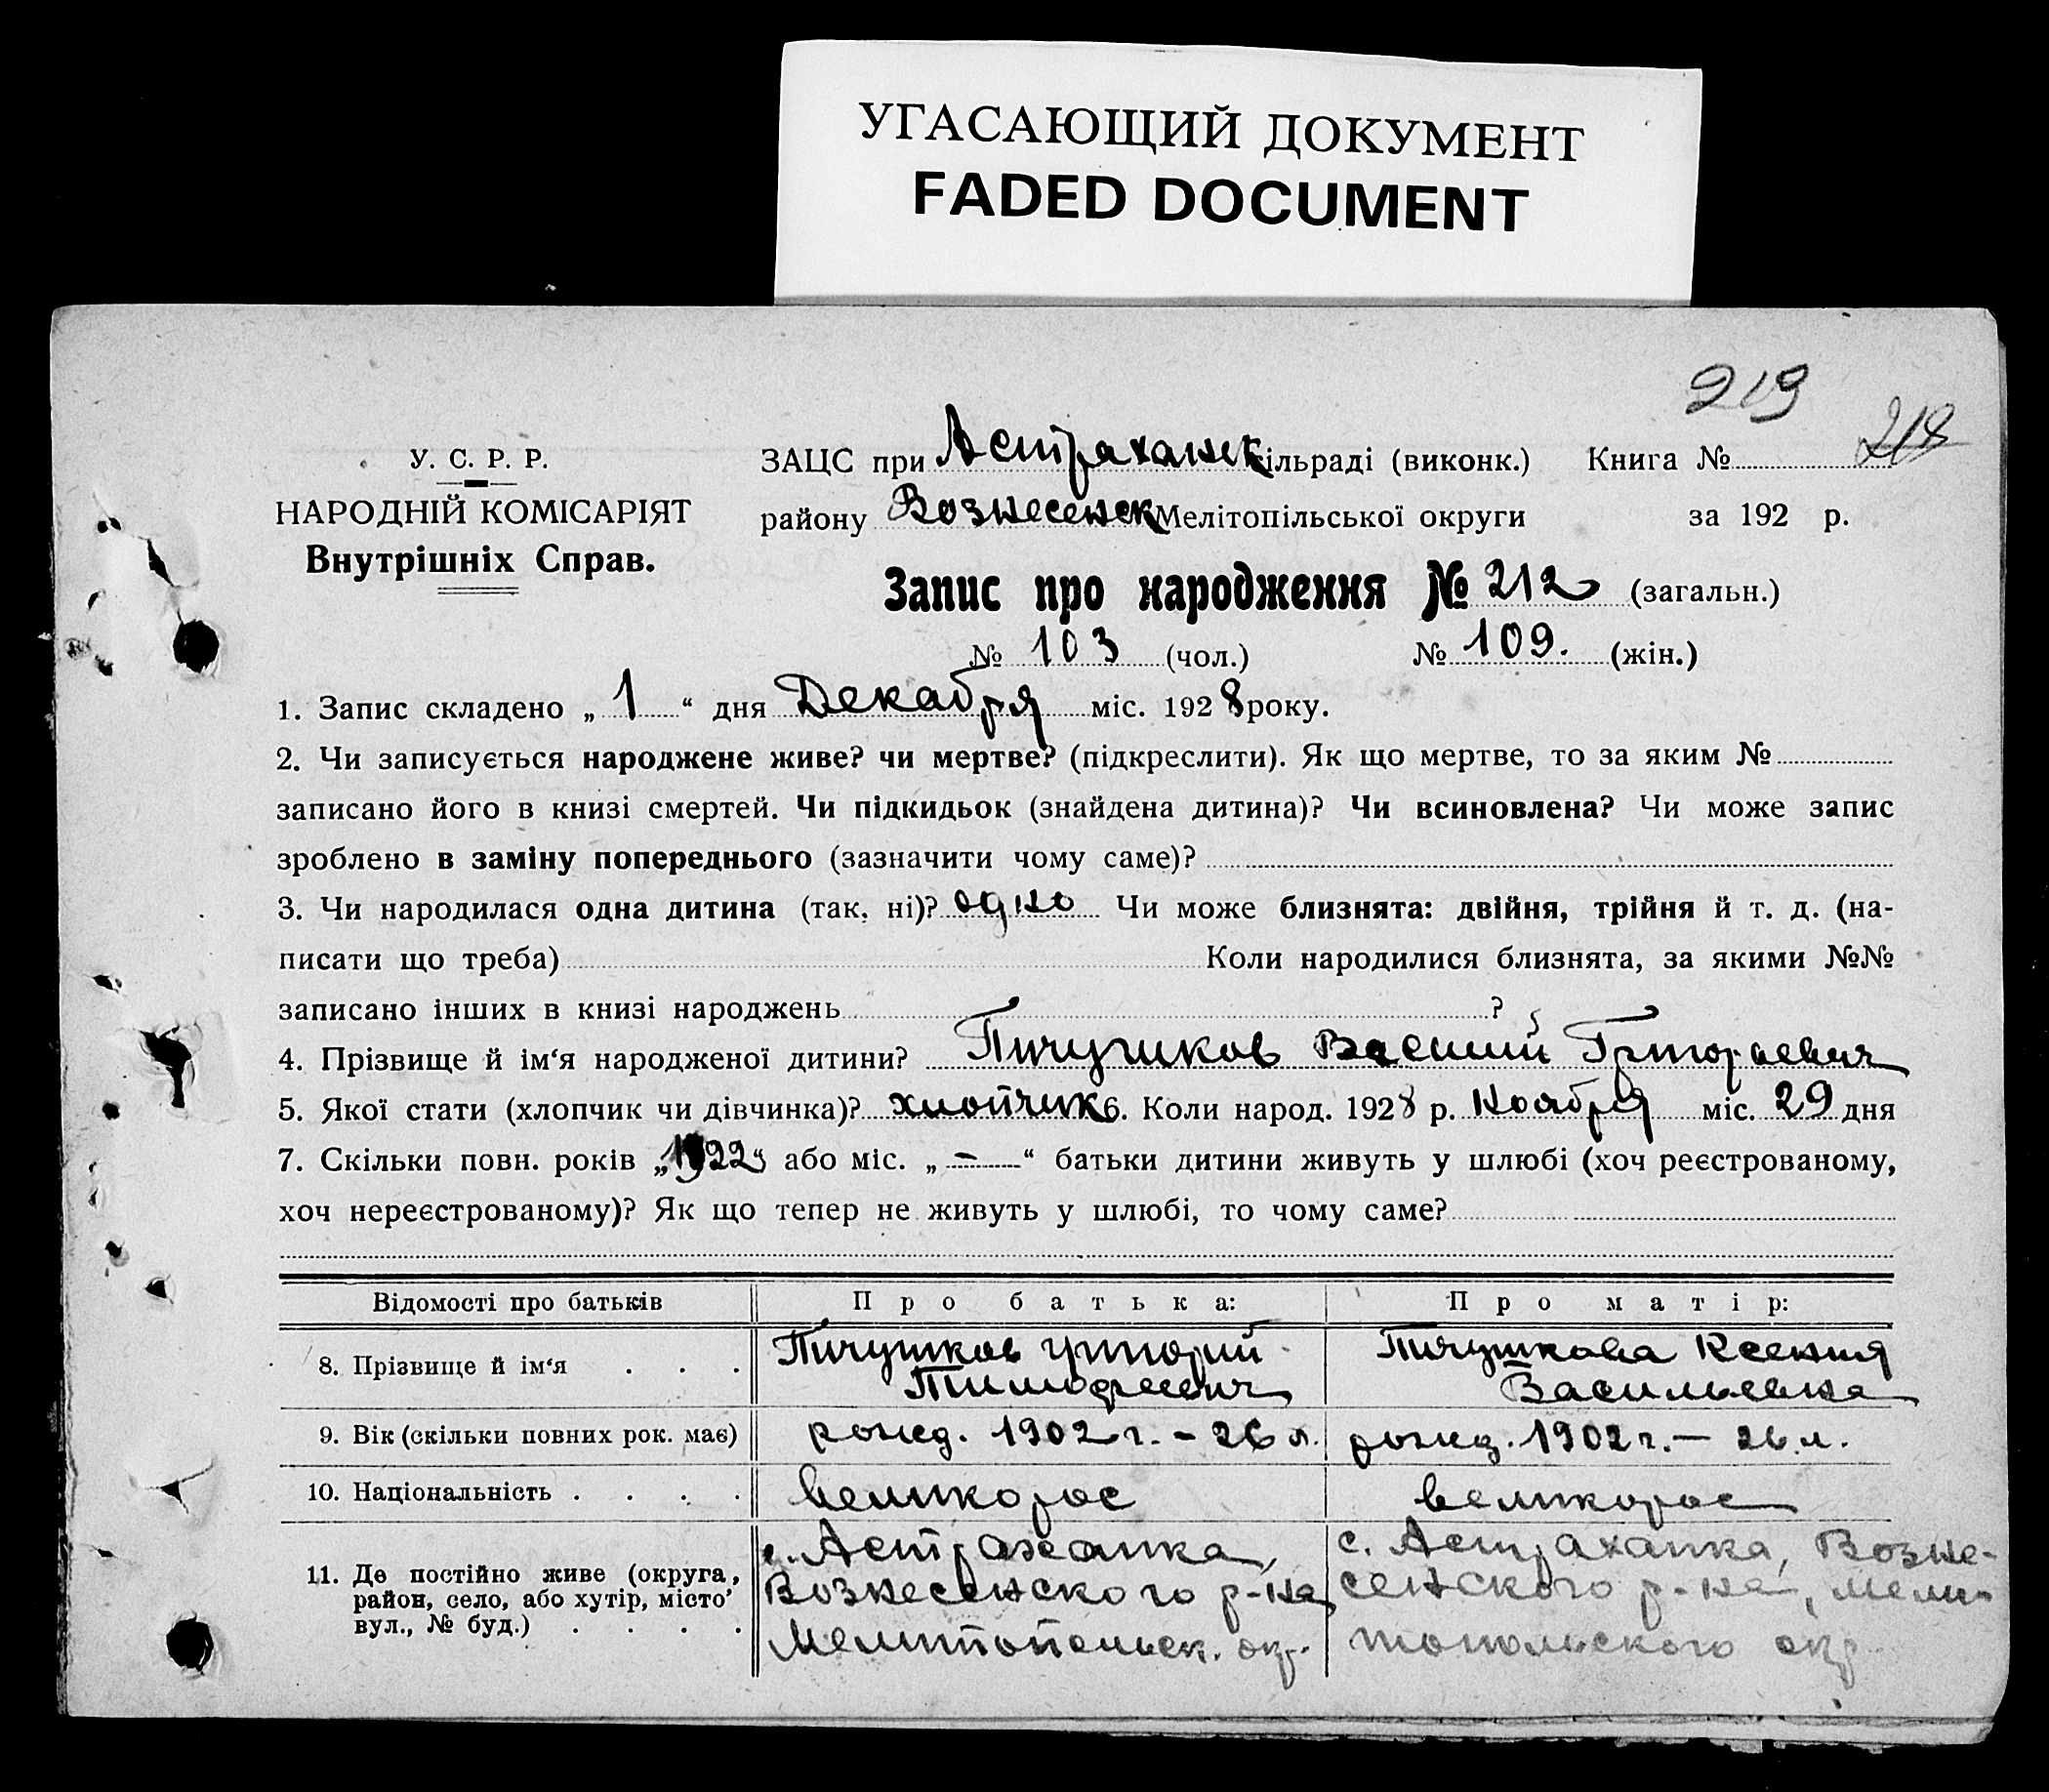 УГАСАЮЩИЙ ДОКУМЕНТ
FADED DOCUMENT
219
218
У. С. Р. Р.
НАРОДНІЙ КОМІСАРІЯТ
Внутрішніх Справ.
ЗАЦС при Астраханск сільраді (виконк.) Книга №
району Вознесенск Мелітопільської округи за 192 р.
Запис про народження № 212 (загальн.)
№ 103 (чол.) № 109. (жін.)
1. Запис складено „ 1 “ дня Декабря міс. 1928 року.
2. Чи записується народжене живе? чи мертве? (підкреслити). Як що мертве, то за яким №
записано його в книзі смертей. Чи підкидьок (знайдена дитина)? Чи всиновлена? Чи може запис
зроблено в заміну попереднього (зазначити чому саме)?
3. Чи народилася одна дитина (так, ні)? одно Чи може близнята: двійня, трійня й т. д. (на-
писати що треба) Коли народилися близнята, за якими №№
записано інших в книзі народжень ?
4. Прізвище й ім‘я народженої дитини? Пичушков Василий Григорьевич
5. Якої стати (хлопчик чи дівчинка)? хлопчик 6. Коли народ. 1928 р. Ноября міс. 29 дня
7. Скільки повн. років „1922“ або міс. „ – “ батьки дитини живуть у шлюбі (хоч реєстрованому,
хоч нереєстрованому)? Як що тепер не живуть у шлюбі, то чому саме?
Відомості про батьків Про батька: Про матір:
8. Прізвище й ім‘я . . . Пичушков Григорий Тимофеевич Пичушкова Ксения Васильевна
9. Вік (скільки повних рок. має) рожд. 1902 г. - 26 л. рожд. 1902 г. — 26 л.
10. Національність . . . . великорос великорос
11. Де постійно живе (округа, с. Астраханка, с. Астраханка, Возне-
район, село, або хутір, місто’ Вознесенского р-на, сенского р-на, мели-
вул., № буд.) . . . . Мелитопольск. окр. топольского окр